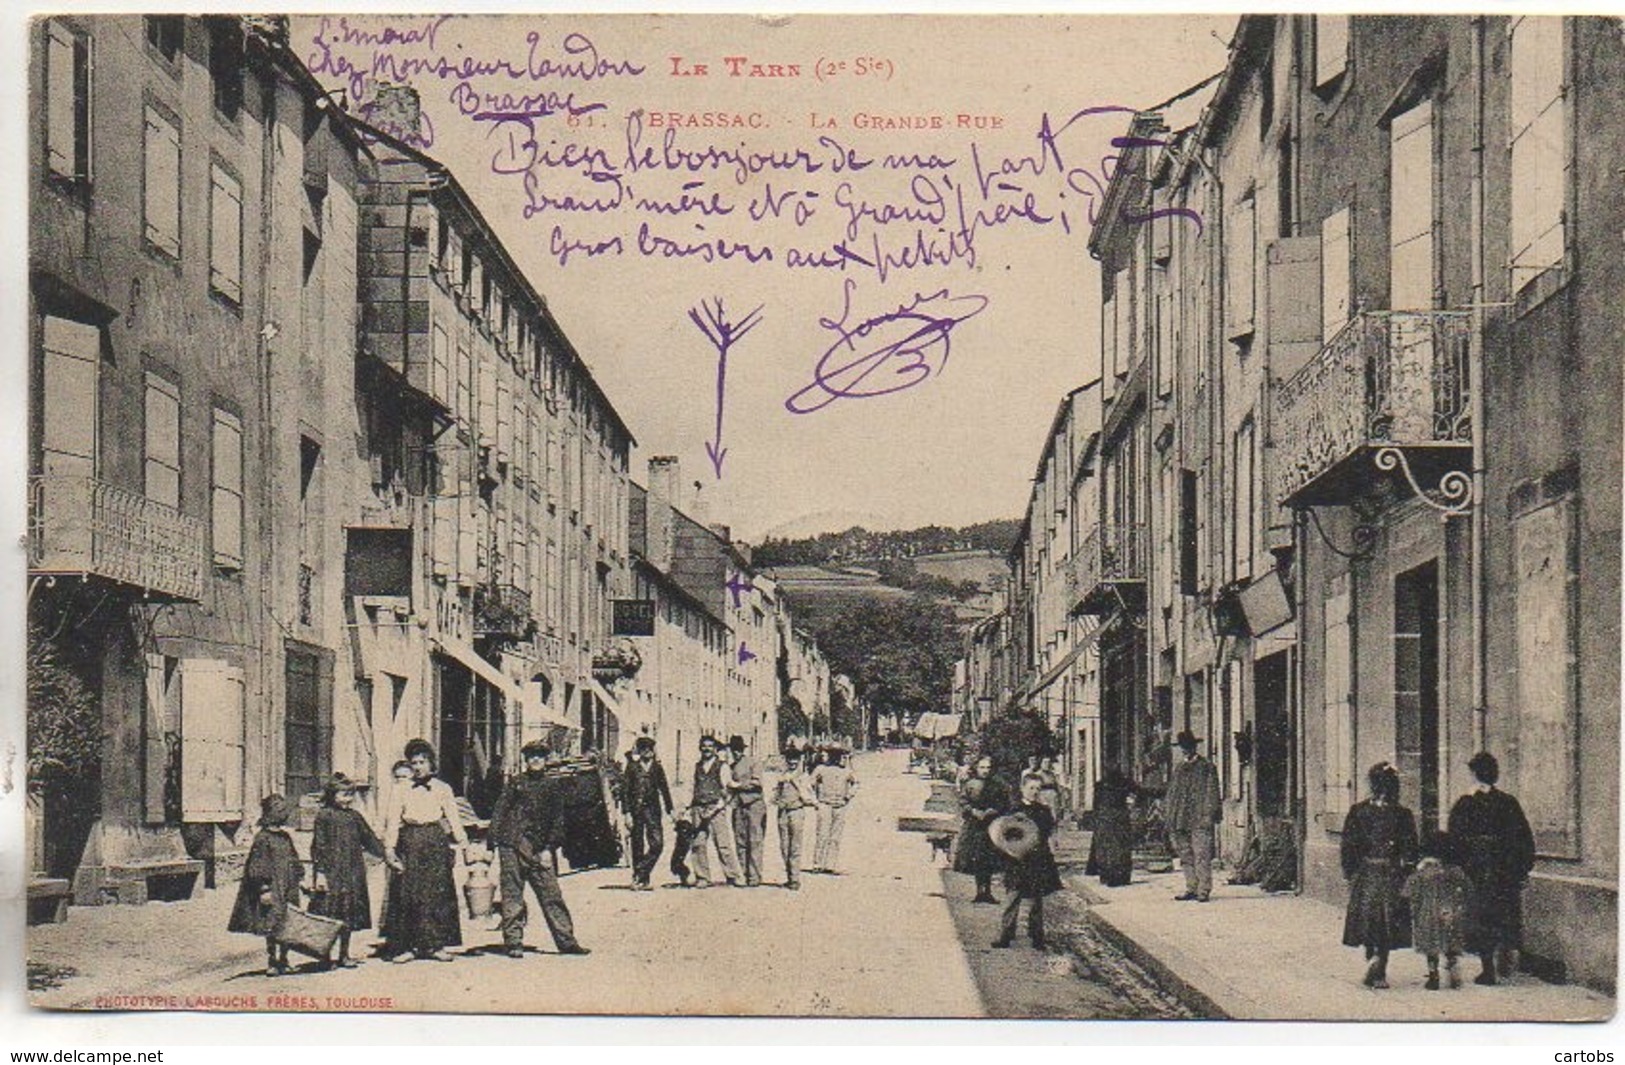 L. Emorat
chez Monsieur Tandon
Brassac
Tarn
LE TARN (2e Sie)
61. - BRASSAC. - LA GRANDE-RUE
Bien le bonjour de ma part
Grand'mère et à Grand'père; de
Gros baisers aux petits
Louis
CAFÉ
PHOTOTYPIE LABOUCHE FRÈRES, TOULOUSE
www.delcampe.net
cartobs